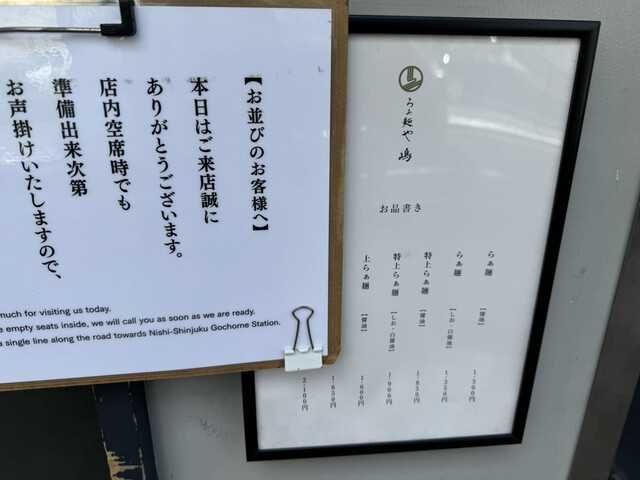 【お並びのお客様へ】
本日はご来店誠に
ありがとうございます。
店内空席時でも
準備出来次第
お声掛けいたしますので、
much for visiting us today.
empty seats inside, we will call you as soon as we are ready.
single line along the road towards Nishi-Shinjuku Gochome Station.
らぁ麺や 嶋
お品書き
らぁ麺 【醤油】 1・300円
らぁ麺 【しお・白醤油】 1・350円
特上らぁ麺 【醤油】 1・850円
特上らぁ麺 【しお・白醤油】 1・900円
上らぁ麺 【醤油】 1・600円
1・650円
2・100円